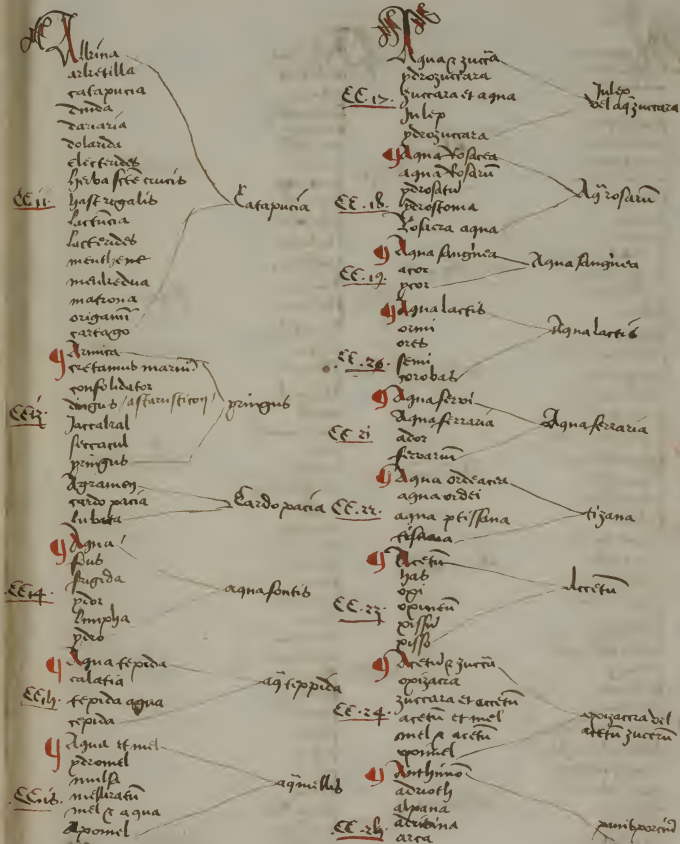 Albina
arbetilla
catapucia
dmda
dararia
dolarida
electerides
herba scte crucis
CC.11. hast regalis
lactucia
lacterides
menthene
meuredua
matrona
origanu
cartago
Catapucia
¶ Armica
cretamus marin
consolidator
CC13. dingus / astarusticon /
Jaccalral
seccacul
yringus
yringus
Agramen
cardo pacia
lubata
Cardo pacia
¶ Aqua
fons
frigida
CC14. ydor
limpha
ydro
aqua fontis
¶ Aqua tepida
calatia
CC15. tepida aqua
cepida
aq teppida
¶ Aqua et mel
ydromel
mulsa
CC.16. mellicratu
mel & aqua
Apomel
aq mellis
Aqua & zuccu
ydrozuccara
CC.17. zuccara et aqua
Julep
ydrozuccara
Julep
vel aq zuccara
¶ Aqua rosacea
aqua rosaru
ydrosatu
CC.18. hydrostoma
Rosacea aqua
Aq rosaru
¶ Aqua sanguinea
acor
CC.19. ycor
Aqua sanguinea
¶ Aqua lactis
ormi
ores
CC.20. semi
corobas
Aqua lactis
¶ Aqua ferri
Aqua ferraria
CC 21 ador
ferrariu
Aqua ferraria
¶ Aqua ordeacea
aqua ordei
CC.22. aqua ptissana
tissana
tizana
¶ Acetu
has
opi
CC.23. opimeu
pissu
pisso
Accetu
¶ Acetu & zuccu
opizacra
zuccara et accetu
CC.24. acetu et mel
mel & acetu
opomel
opizaccra vel
acetu zuceru
¶ Anthino
adrioth
alpana
CC.25. adritina
arca
panis porcinu